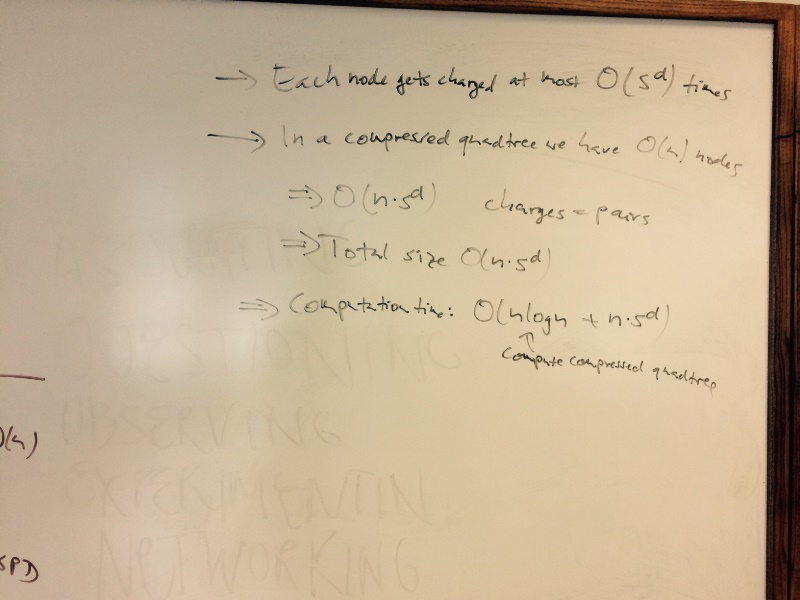 → Each node gets charged at most O(s^d) times
→ In a compressed quadtree we have O(n) nodes
⇒ O(n·s^d) charges = pairs
⇒ Total size O(n·s^d)
⇒ Computation time: O(nlogn + n·s^d)
↑
Compute compressed quadtree
OBSERVING
NETWORKING